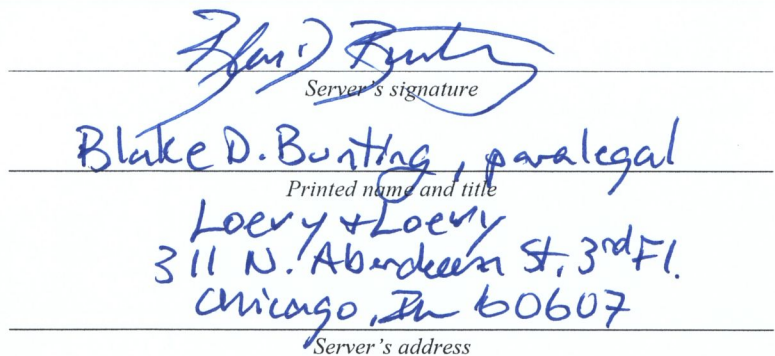 Blake D. Bunting
Server's signature
Blake D. Bunting, paralegal
Printed name and title
Loevy + Loevy
311 N. Aberdeen St, 3rd Fl.
Chicago, IL 60607
Server's address